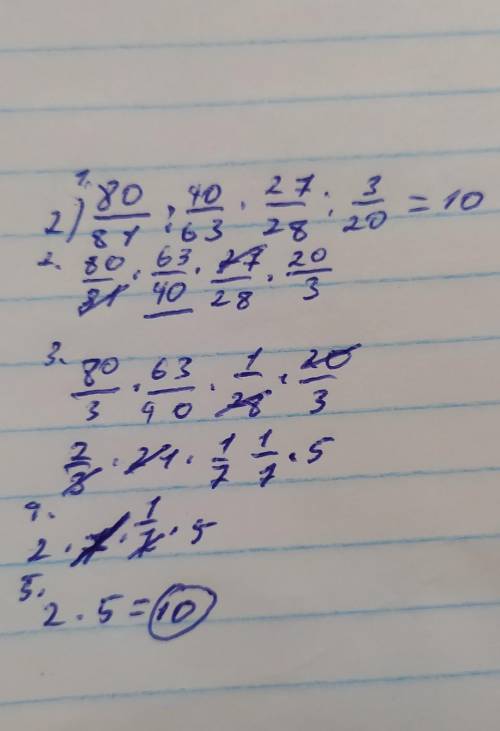 1.
2) 80/81 : 40/63 · 27/28 : 3/20 = 10
2. 80/81 · 63/40 · 27/28 · 20/3
3. 80/3 · 63/40 · 1/28 · 20/3
2/3 · 21 · 1/7 1/1 · 5
4.
2 · 7 · 1/7 · 5
5.
2 · 5 = 10